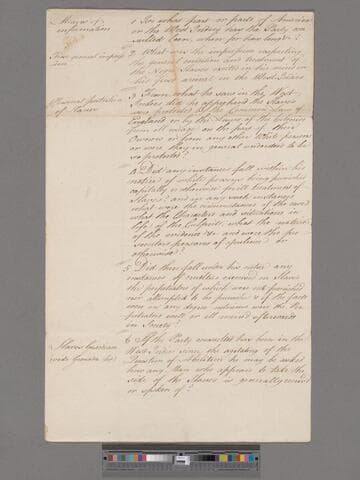 Means of
information
1 For what part or parts of America
or the West Indies has the Party
resided been, when for how long?
First general impress
ions
2 What were the impressions respecting
the general condition and treatment of
the Negro Slaves excited in his mind on
his first arrival in the West Indies
Personal protection
of Slaves
3 From what he saw in the West
Indies did he apprehend the Slaves
were protected by the Common Law of
England or by the Laws of the Colonies
from ill usage on the part of their
Owners or from any other White persons
or were they in general understood to be
so protected?
4 Did any instances fall within his
notice of white persons being punished
capitally or otherwise for ill treatment of
Slaves? and in any such instances
what were the circumstances of the case
what the Characters and situations in
life of the Culprits, what the nature
of the evidence &c and were the pro
secutors persons of opulence or
otherwise?
5 Did there fall under his notice any
instances of cruelties exercised on Slaves
the perpetrators of which were not punished
nor attempted to be punished & if the facts
were in any degree notorious were the Per
petrators well or ill received afterwards
in Society?
6 If the Party consulted has been in the
West Indies since the agitating of the
Question of Abolition he may be asked
how any Man who appears to take the
side of the Slaves is generally received
or spoken of?